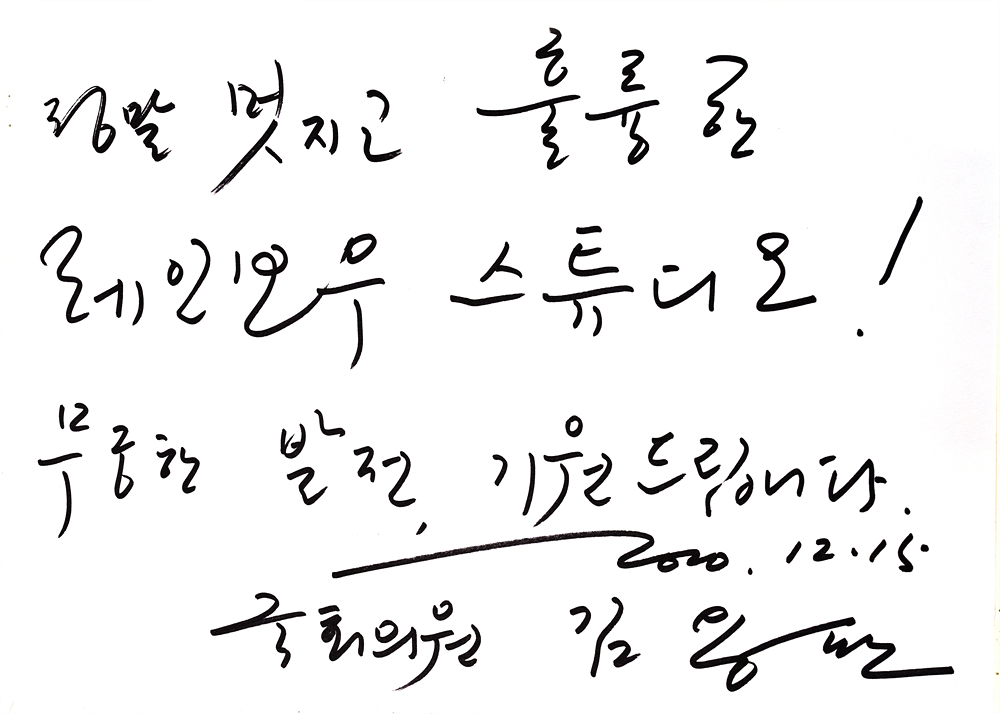 정말 멋지고 훌륭한
레인보우 스튜디오!
무궁한 발전, 기원드립니다.
2020. 12. 15.
국회의원 김용판